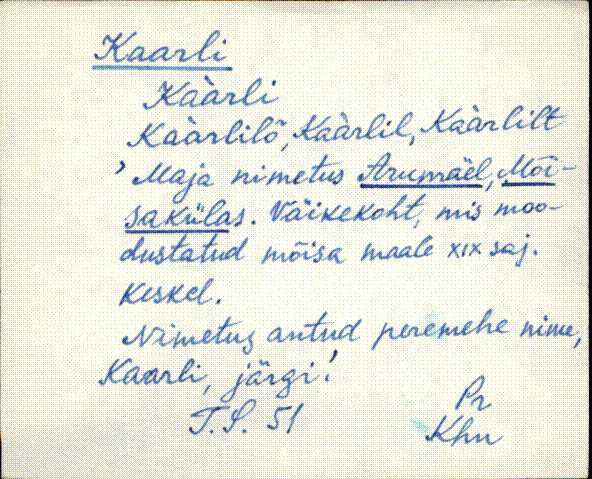 Kaarli
Kàarli
Kàarlilõ, Kàarlil, Kàarlilt
'Maja nimetus Arumäel, Mõi-
sakülas. Väikekoht, mis moo-
dustatud mõisa maale XIX saj.
keskel.
Nimetus antud peremehe nime,
Kaarli, järgi.'
T.S. 51
Pr
Khn